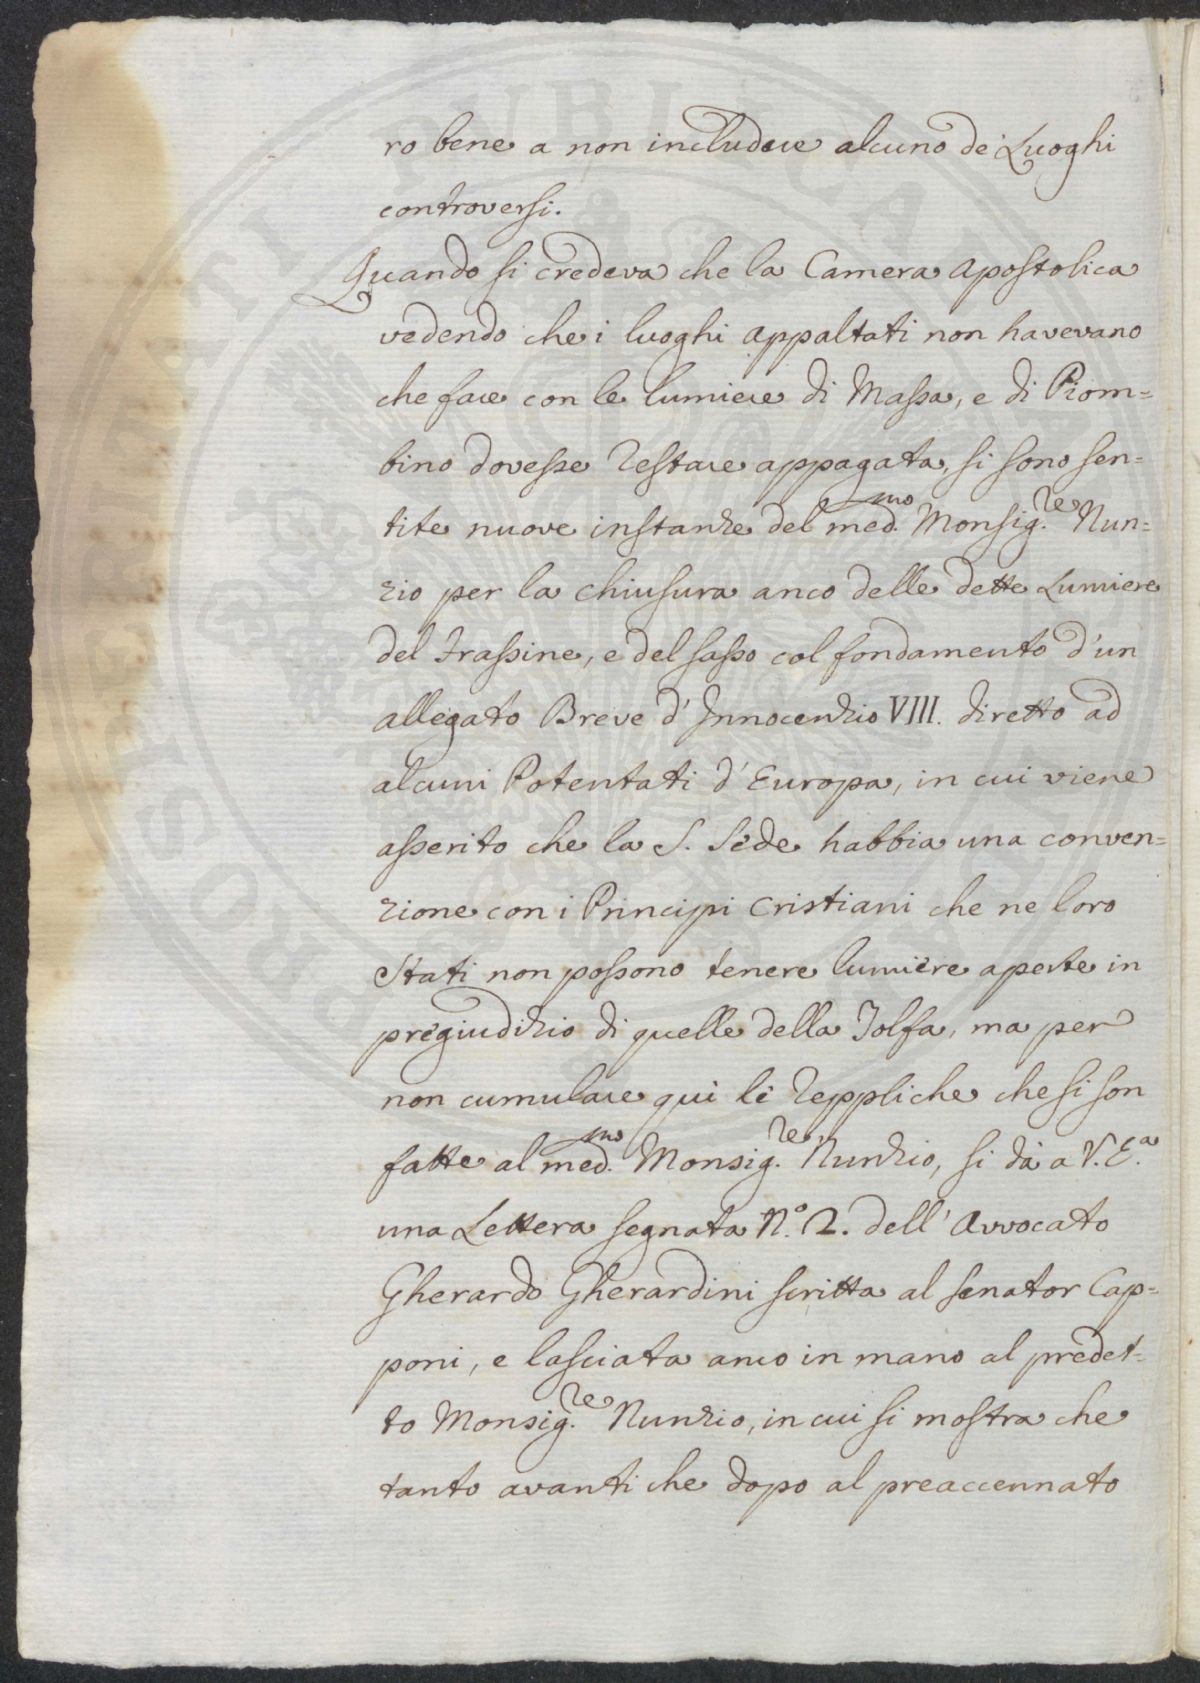 ro bene a non includere alcuno de' Luoghi
controversi.
Quando si credeva che la Camera Apostolica
vedendo che i luoghi appaltati non havevano
che fare con le lumiere di Massa, e di Piom=
bino dovesse restare appagata, si sono sen=
tite nuove instanze del med.mo Monsig.re Nun=
zio per la chiusura anco delle dette Lumiere
del Frassine, e del sasso col fondamento d'un
allegato Breve d'Innocenzio VIII. diretto ad
alcuni Potentati d'Europa, in cui viene
asserito che la S. Sede habbia una conven=
zione con i Principi Cristiani che ne loro
Stati non possono tenere lumiere aperte in
pregiudizio di quelle della Tolfa, ma per
non cumulare qui le reppliche che si son
fatte al med.mo Monsig.re Nunzio, si dà a V. E.a
una Lettera segnata N.o 2. dell'Avvocato
Gherardo Gherardini scritta al senator Cap=
poni, e lasciata anco in mano al predet=
to Monsig.re Nunzio, in cui si mostra che
tanto avanti che dopo al preaccennato